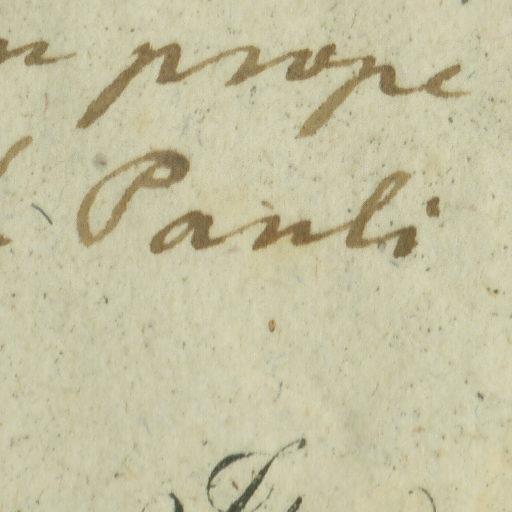 prope
Pauli